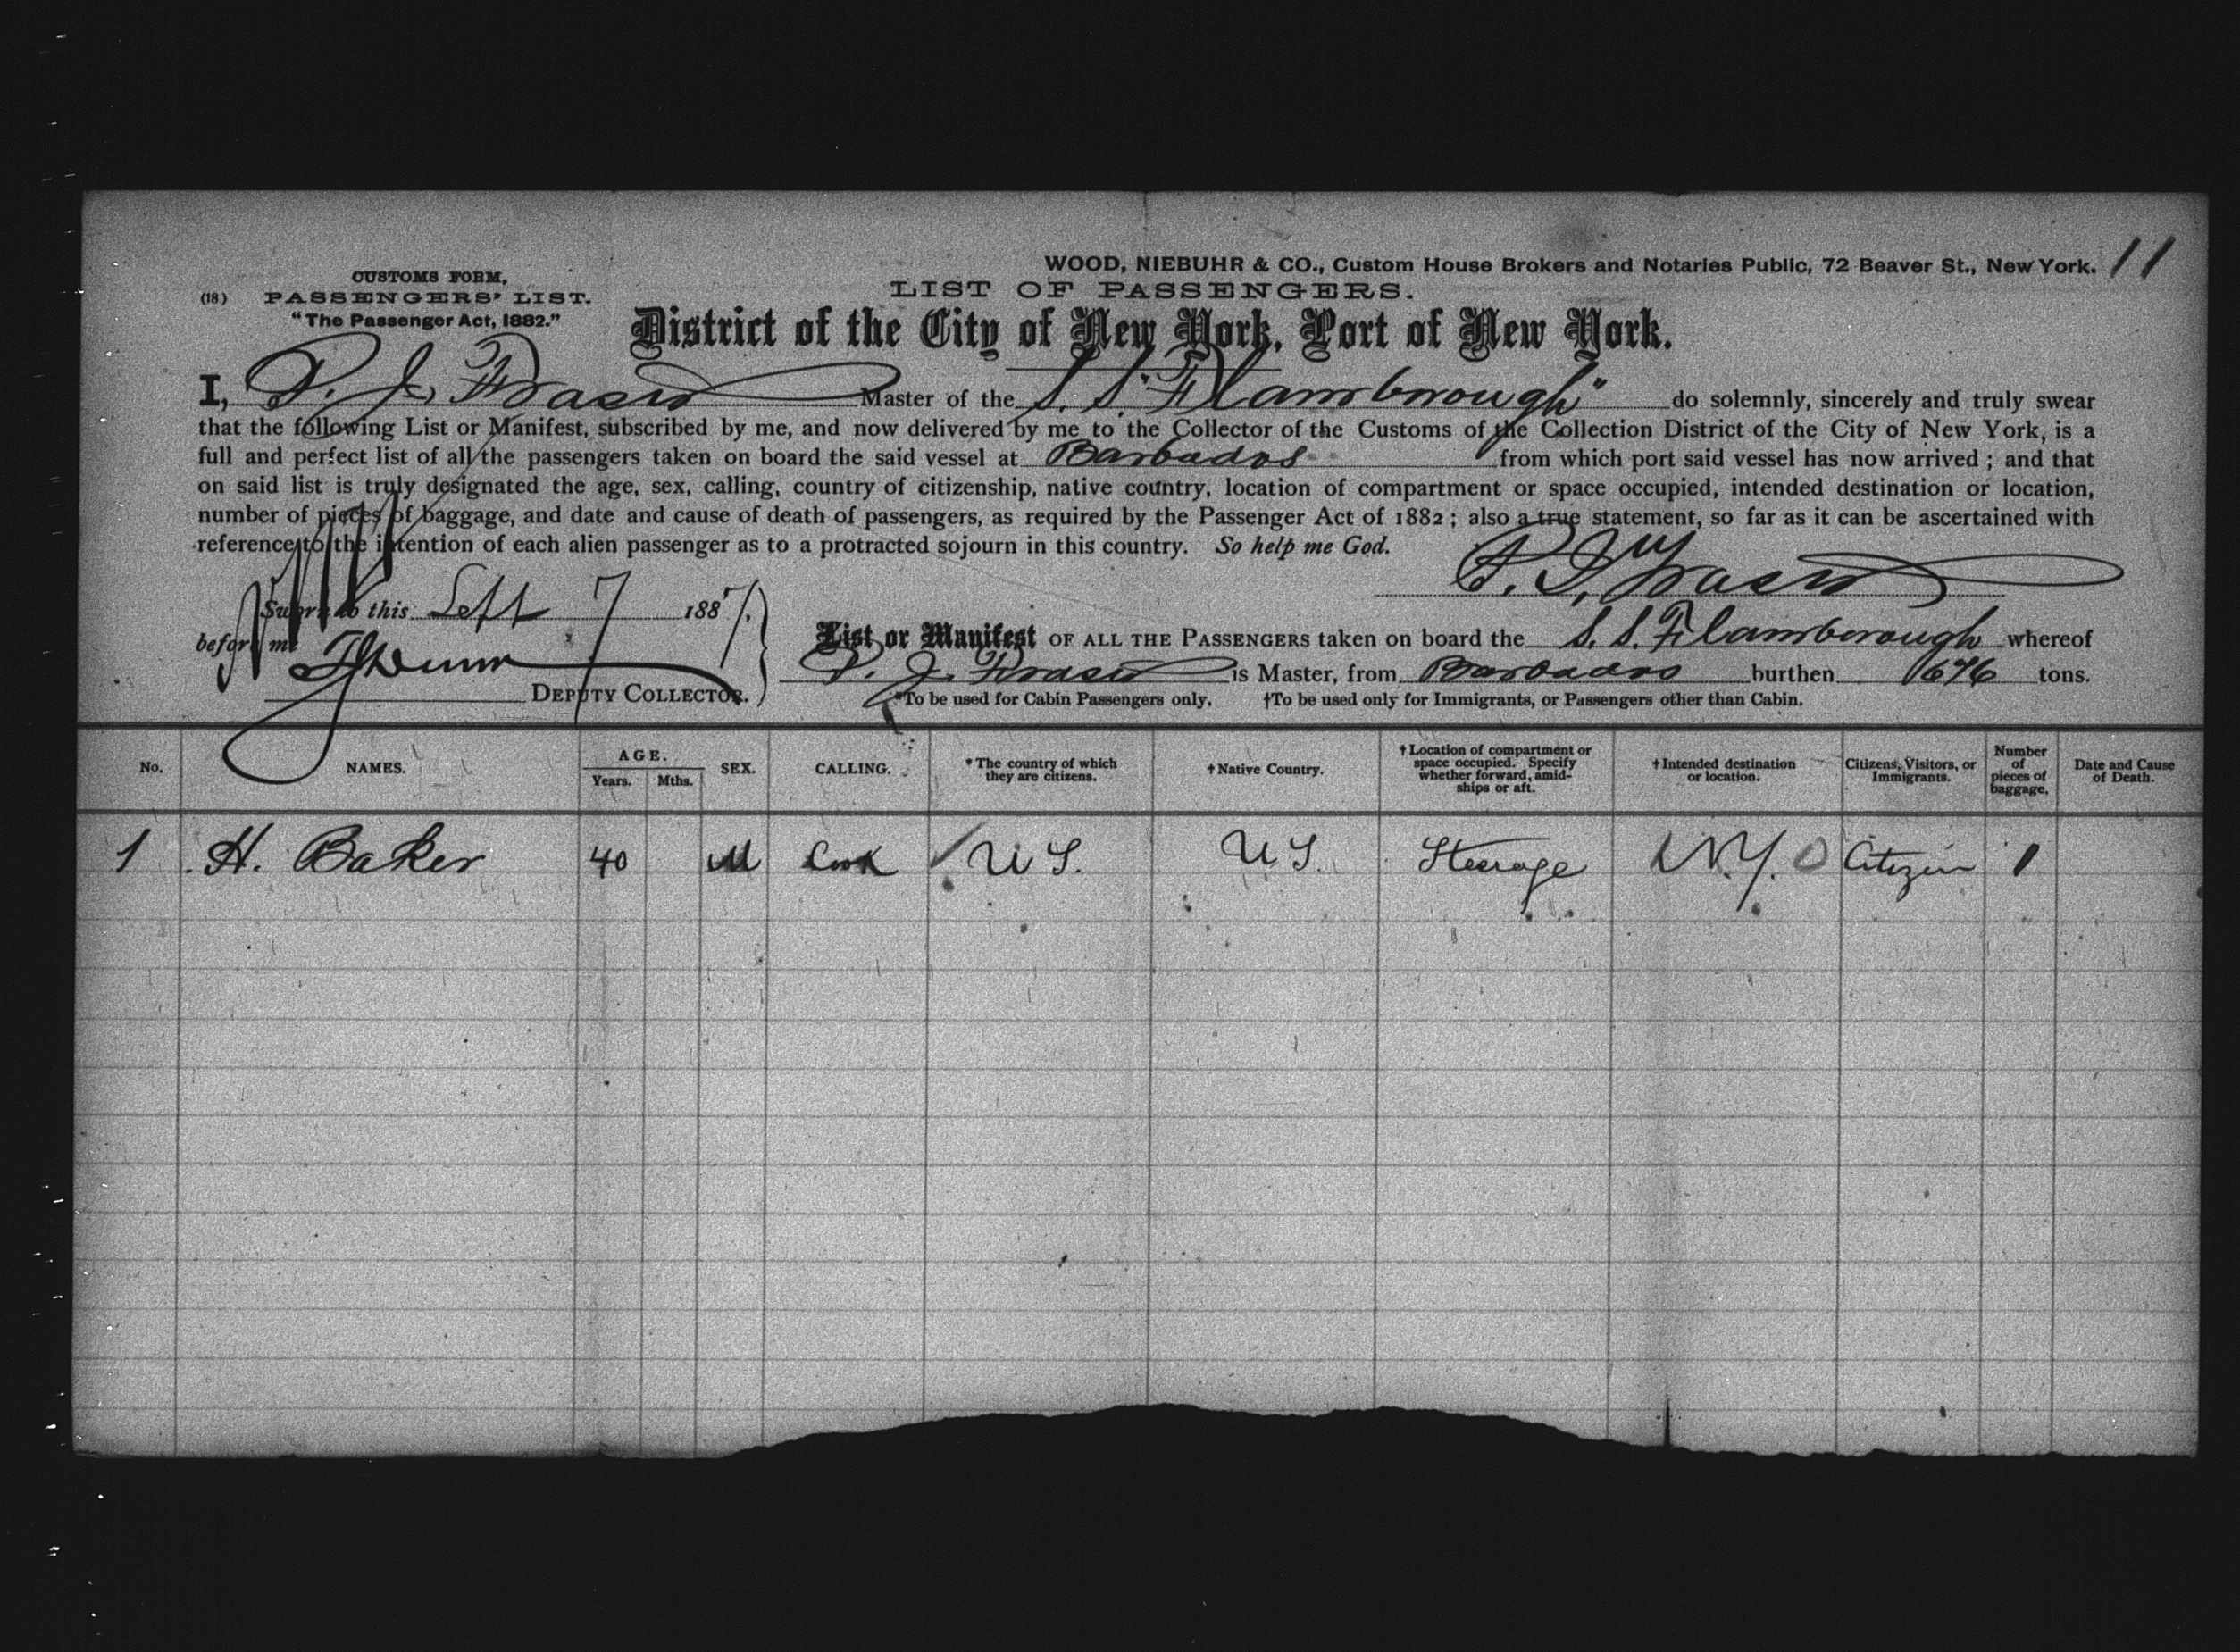 WOOD, NIEBUHR & CO., Custom House Brokers and Notaries Public, 72 Beaver St., New York. 11
CUSTOMS FORM,
(18) PASSENGERS' LIST.
"The Passenger Act, 1882."
LIST OF PASSENGERS.
District of the City of New York, Port of New York.
I, P. J. Fraser Master of the S. S. "Flamborough" do solemnly, sincerely and truly swear
that the following List or Manifest, subscribed by me, and now delivered by me to the Collector of the Customs of the Collection District of the City of New York, is a
full and perfect list of all the passengers taken on board the said vessel at Barbados from which port said vessel has now arrived; and that
on said list is truly designated the age, sex, calling, country of citizenship, native country, location of compartment or space occupied, intended destination or location,
number of pieces of baggage, and date and cause of death of passengers, as required by the Passenger Act of 1882; also a true statement, so far as it can be ascertained with
reference to the intention of each alien passenger as to a protracted sojourn in this country. So help me God.
P. J. Fraser
Sworn to this Sept 7 1887.
before me
DEPUTY COLLECTOR.
List or Manifest OF ALL THE PASSENGERS taken on board the S. S. Flamborough whereof
P. J. Fraser is Master, from Barbados burthen 676 tons.
*To be used for Cabin Passengers only. †To be used only for Immigrants, or Passengers other than Cabin.
No. NAMES. AGE. Years. Mths. SEX. CALLING. *The country of which they are citizens. †Native Country. †Location of compartment or space occupied. Specify whether forward, amidships or aft. †Intended destination or location. Citizens, Visitors, or Immigrants. Number of pieces of baggage. Date and Cause of Death.
1 H. Baker 40 M Cook U S. U S. Steerage N.Y. Citizen 1